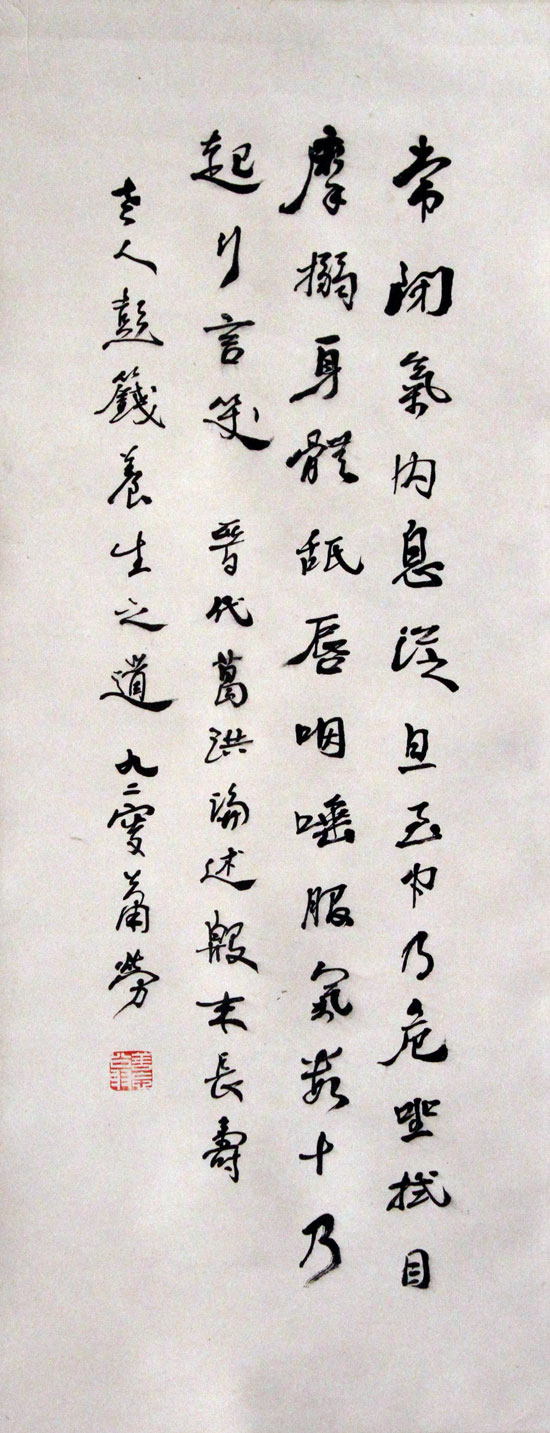 常閉氣內息從旦至中乃危坐拭目
摩搦身體舐唇咽唾服氣數十乃
起行言笑 晉代葛洪論述殷末長壽
老人彭籛養生之道 九二叟蕭勞